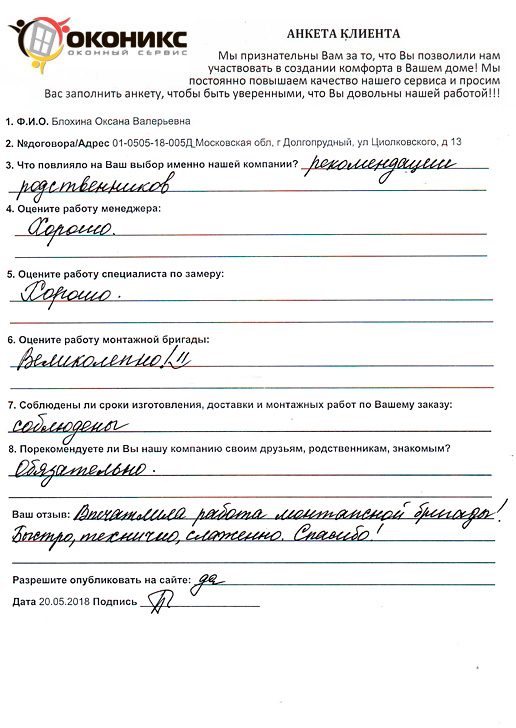 ОКОНИКС
ОКОННЫЙ СЕРВИС
АНКЕТА КЛИЕНТА
Мы признательны Вам за то, что Вы позволили нам
участвовать в создании комфорта в Вашем доме! Мы
постоянно повышаем качество нашего сервиса и просим
Вас заполнить анкету, чтобы быть уверенными, что Вы довольны нашей работой!!!
1. Ф.И.О. Блохина Оксана Валерьевна
2. №договора/Адрес 01-0505-18-005Д,Московская обл, г Долгопрудный, ул Циолковского, д 13
3. Что повлияло на Ваш выбор именно нашей компании? рекомендации
родственников
4. Оцените работу менеджера:
Хорошо.
5. Оцените работу специалиста по замеру:
Хорошо.
6. Оцените работу монтажной бригады:
Великолепно!!!
7. Соблюдены ли сроки изготовления, доставки и монтажных работ по Вашему заказу:
соблюдены
8. Порекомендуете ли Вы нашу компанию своим друзьям, родственникам, знакомым?
Обязательно.
Ваш отзыв: Впечатлила работа монтажной бригады!
Быстро, технично, слаженно. Спасибо!
Разрешите опубликовать на сайте: да
Дата 20.05.2018 Подпись